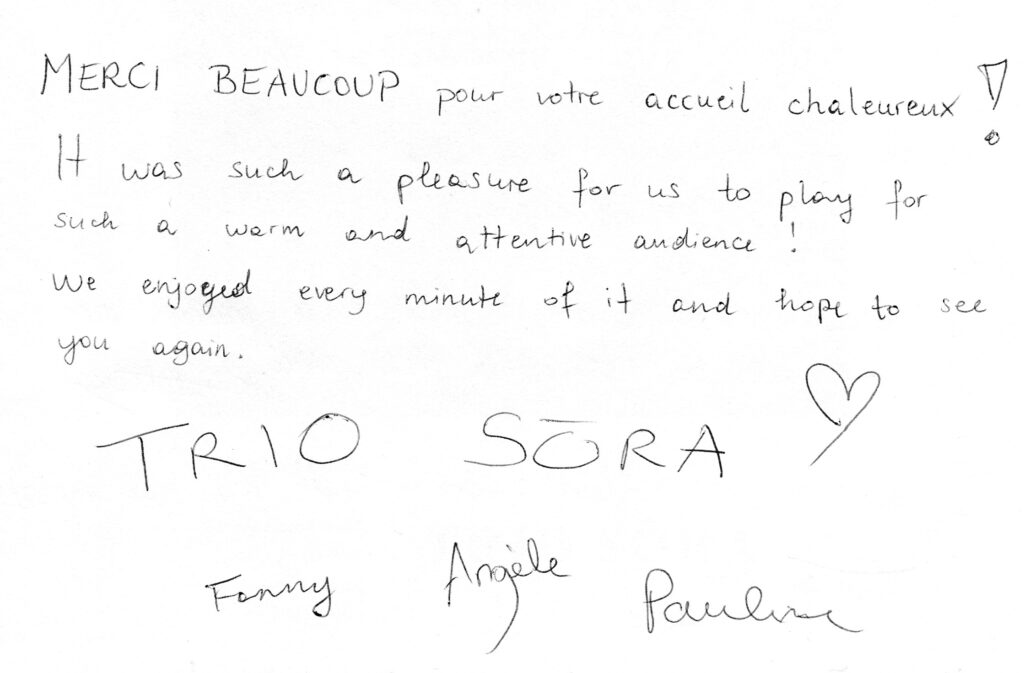 MERCI BEAUCOUP pour votre accueil chaleureux !
It was such a pleasure for us to play for
such a warm and attentive audience !
We enjoyed every minute of it and hope to see
you again.
TRIO SŌRA
Fanny Angèle Pauline